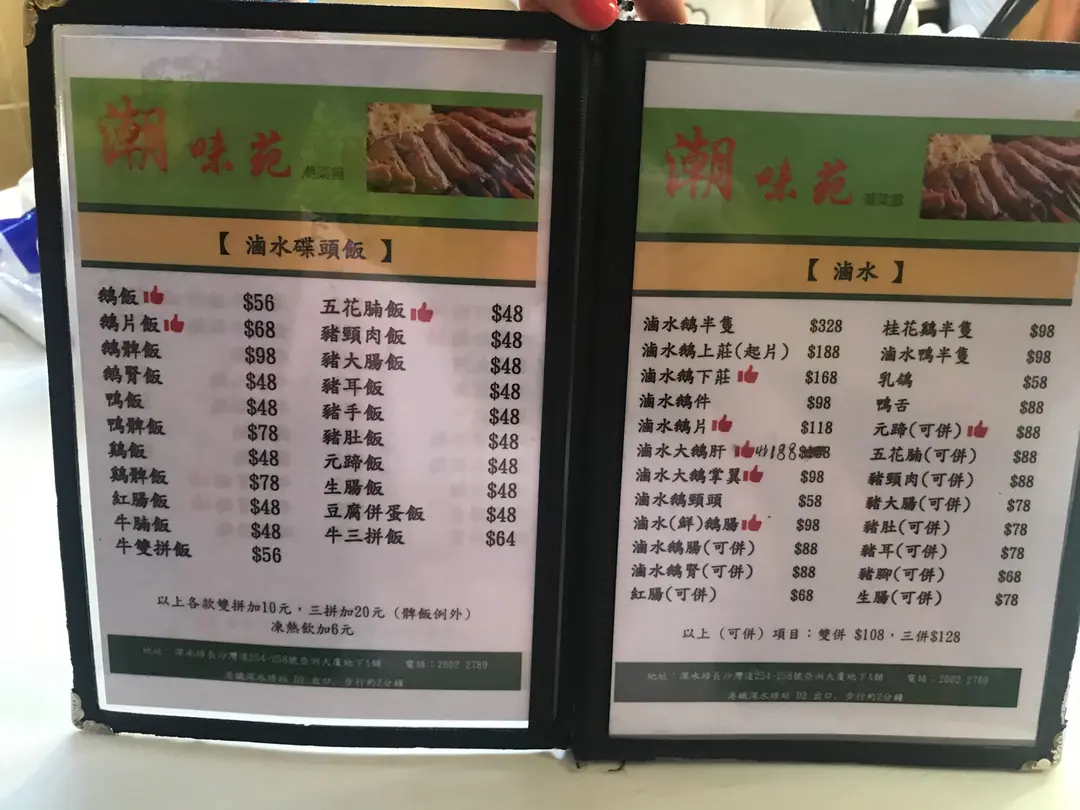 潮味苑 潮菜館
【 滷水碟頭飯 】
鵝飯 $56
鵝片飯 $68
鵝髀飯 $98
鵝腎飯 $48
鴨飯 $48
鴨髀飯 $78
鷄飯 $48
鷄髀飯 $78
紅腸飯 $48
牛腩飯 $48
牛雙拼飯 $56
五花腩飯 $48
豬頸肉飯 $48
豬大腸飯 $48
豬耳飯 $48
豬手飯 $48
豬肚飯 $48
元蹄飯 $48
生腸飯 $48
豆腐併蛋飯 $48
牛三拼飯 $64
以上各款雙拼加10元，三拼加20元 (髀飯例外)
凍熱飲加6元
地址：深水埗長沙灣道254-258號亞洲大廈地下A舖 電話：2602 2789
港鐵深水埗站 D2 出口, 步行約2分鐘
潮味苑 潮菜館
【 滷水 】
滷水鵝半隻 $328
滷水鵝上莊(起片) $188
滷水鵝下莊 $168
滷水鵝件 $98
滷水鵝片 $118
滷水大鵝肝 188
滷水大鵝掌翼 $98
滷水鵝頸頭 $58
滷水(鮮)鵝腸 $98
滷水鵝腸(可併) $88
滷水鵝腎(可併) $88
紅腸(可併) $68
桂花鷄半隻 $98
滷水鴨半隻 $98
乳鴿 $58
鴨舌 $88
元蹄(可併) $88
五花腩(可併) $88
豬頸肉(可併) $88
豬大腸(可併) $78
豬肚(可併) $78
豬耳(可併) $78
豬腳(可併) $68
生腸(可併) $78
以上 (可併) 項目：雙併 $108，三併$128
地址：深水埗長沙灣道254-258號亞洲大廈地下A舖 電話：2602 2789
港鐵深水埗站 D2 出口, 步行約2分鐘